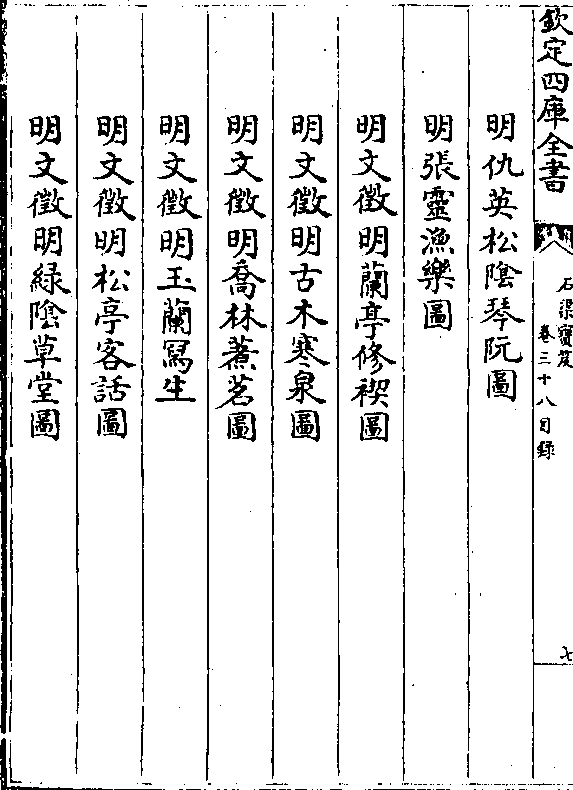 欽定四庫全書
石渠寶笈
卷三十八目錄
七
明仇英松陰琴阮圖
明張靈漁樂圖
明文徵明蘭亭修禊圖
明文徵明古木寒泉圖
明文徵明喬林煮茗圖
明文徵明玉蘭寫生
明文徵明松亭客話圖
明文徵明緑陰草堂圖